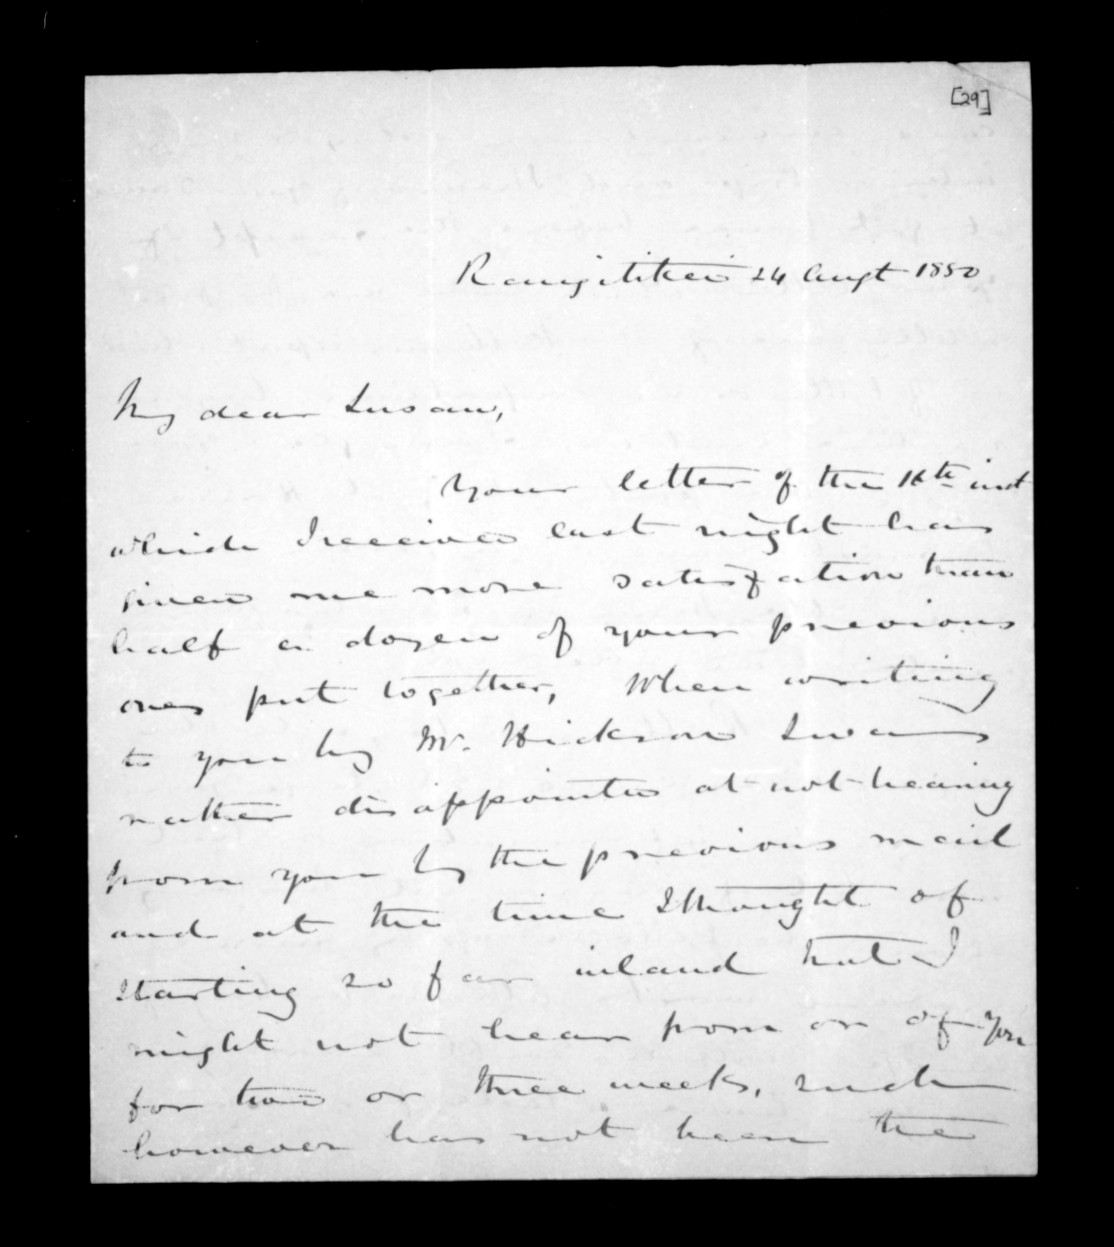 [29]
Rangitikei 24 Augt 1850
My dear Susan,
Your letter of the 16th inst
which I received last night has
given me more satisfation than
half a dozen of your previous
ones put together, When writing
to you by Mr. Hickson I was
rather disappointed at not hearing
from you by the previous mail
and at the time I thought of
starting so far inland that I
might not hear from or of you
for two or three weeks, such
however has not been the